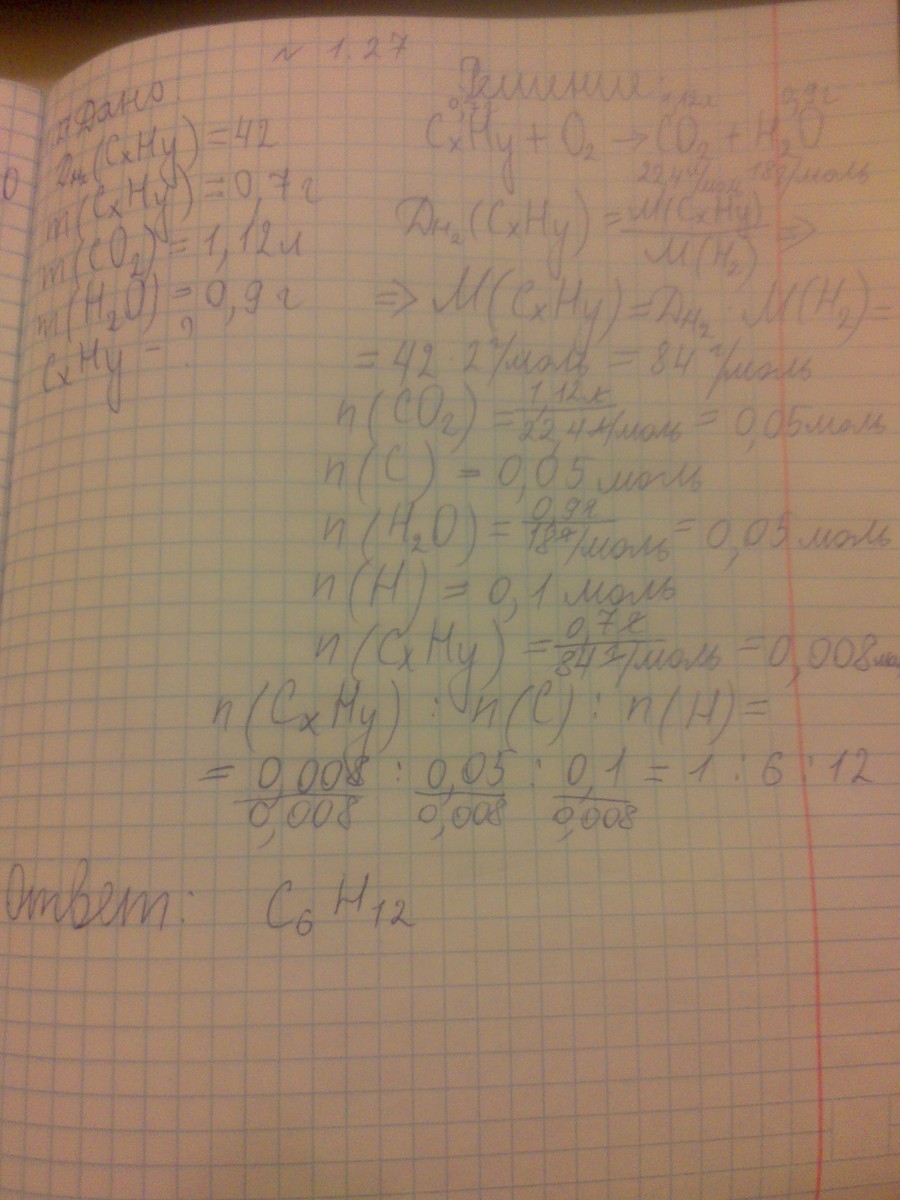 № 1.27
Дано:
D_H₂(CxHy) = 42
m(CxHy) = 0,7г
m(CO₂) = 1,12л
m(H₂O) = 0,9г
CxHy - ?
Решение:
1,12л 0,9г
CxHy + O₂ → CO₂ + H₂O
22,4л/моль 18г/моль
D_H₂(CxHy) = M(CxHy)/M(H₂) ⇒
⇒ M(CxHy) = D_H₂ · M(H₂) =
= 42 · 2г/моль = 84 г/моль
n(CO₂) = 1,12л/22,4л/моль = 0,05моль
n(C) = 0,05 моль
n(H₂O) = 0,9г/18г/моль = 0,05 моль
n(H) = 0,1 моль
n(CxHy) = 0,7г/84г/моль = 0,008мо
n(CxHy) : n(C) : n(H) =
= 0,008/0,008 : 0,05/0,008 : 0,1/0,008 = 1 : 6 : 12
Ответ: C₆H₁₂